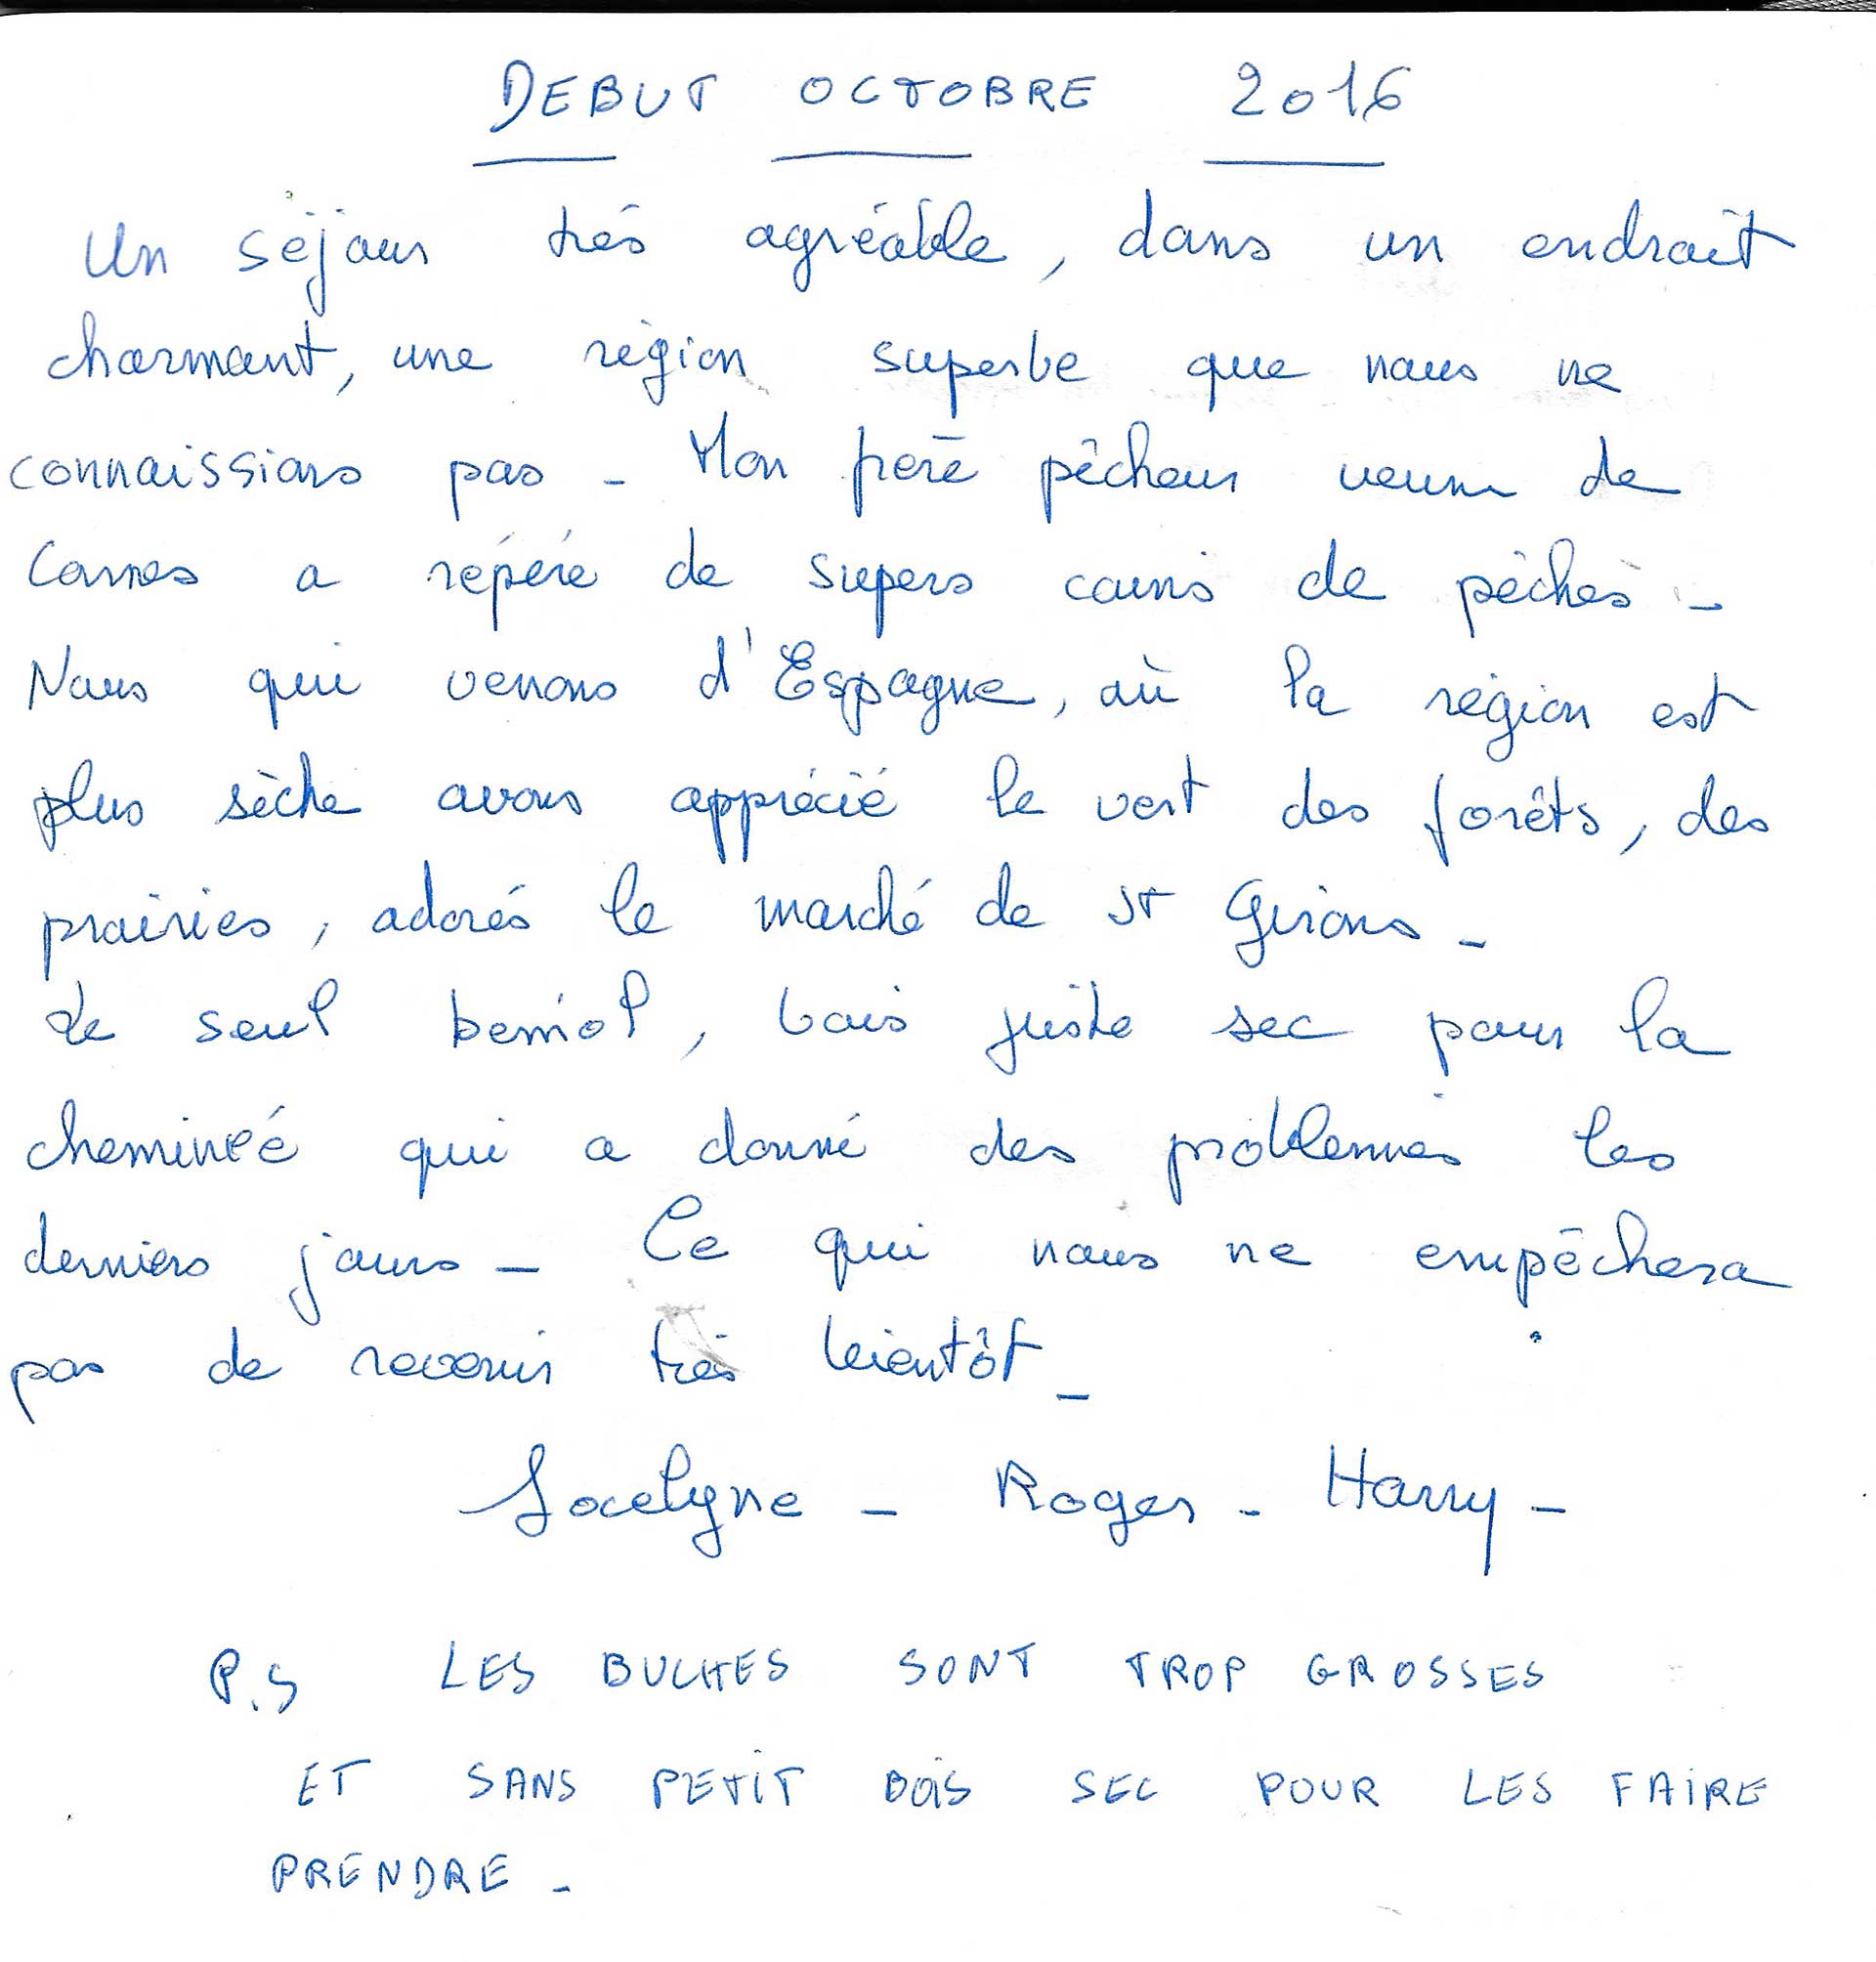 DEBUT OCTOBRE 2016
Un séjour très agréable, dans un endroit
charmant, une région superbe que nous ne
connaissions pas - Mon frère pêcheur venu de
Cannes a répéré de supers coins de pêches -
Nous qui venons d'Espagne, où la région est
plus sèche avons apprécié le vert des forêts, des
prairies, adorés le marché de St Girons -
Le seul bémol, bois juste sec pour la
cheminée qui a donné des problèmes les
derniers jours - Ce qui nous ne empêchera
pas de revenir très bientôt -
Jocelyne - Roger - Harry -
P.S LES BUCHES SONT TROP GROSSES
ET SANS PETIT BOIS SEC POUR LES FAIRE
PRENDRE -